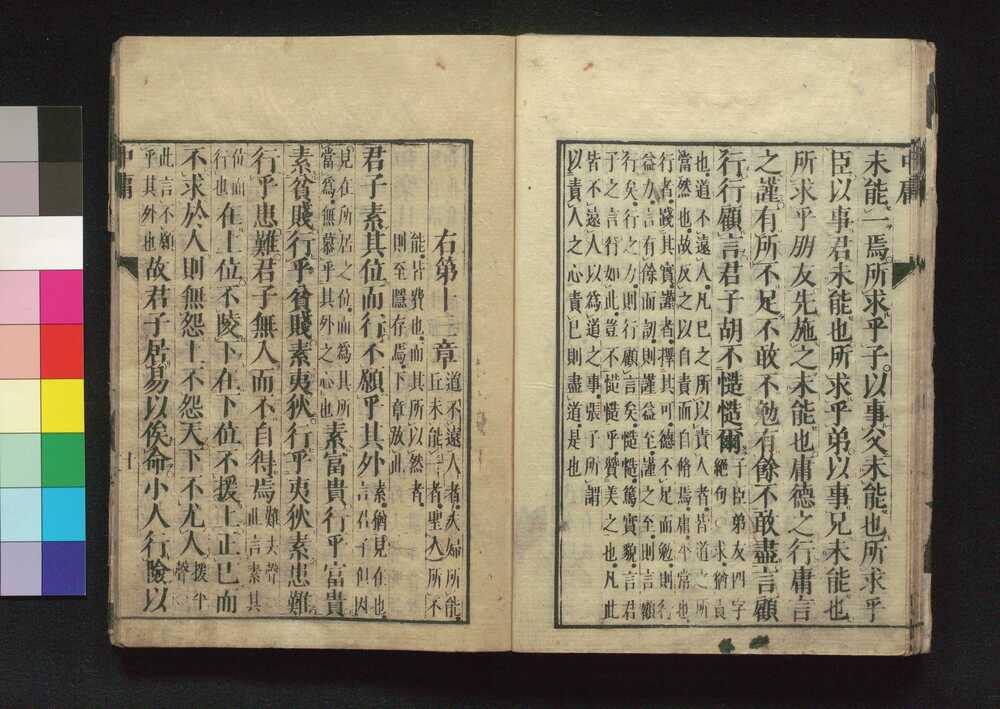 中庸
未能一焉所求乎子以事父未能也所求乎
臣以事君未能也所求乎弟以事兄未能也
所求乎朋友先施之未能也庸德之行庸言
之謹有所不足不敢不勉有餘不敢盡言顧
行行顧言君子胡不慥慥爾
子臣弟友四字
絕句求猶責
也道不遠人凡己之所以責人者皆道之所
當然也故反之以自責而自脩焉庸平常也
行者踐其實謹者擇其可德不足而勉則行
益力言有餘而訒則謹益至謹之至則言顧
行矣行之力則行顧言矣慥慥篤實貌言君
子之言行如此豈不慥慥乎贊美之也凡此
皆不遠人以為道之事張子所謂
以責人之心責己則盡道是也
右第十三章
道不遠人者夫婦所能
丘未能一者聖人所不
能皆費也而其所以然者
則至隱存焉下章放此
君子素其位而行不願乎其外
素猶見在也
言君子但因
見在所居之位而為其所
當為無慕乎其外之心也
素富貴行乎富貴
素貧賤行乎貧賤素夷狄行乎夷狄素患難
行乎患難君子無入而不自得焉
難去聲
此言素其
位而
行也
在上位不陵下在下位不援上正己而
不求於人則無怨上不怨天下不尤人
援平
聲
此言不願
乎其外也
故君子居易以俟命小人行險以
中庸
十